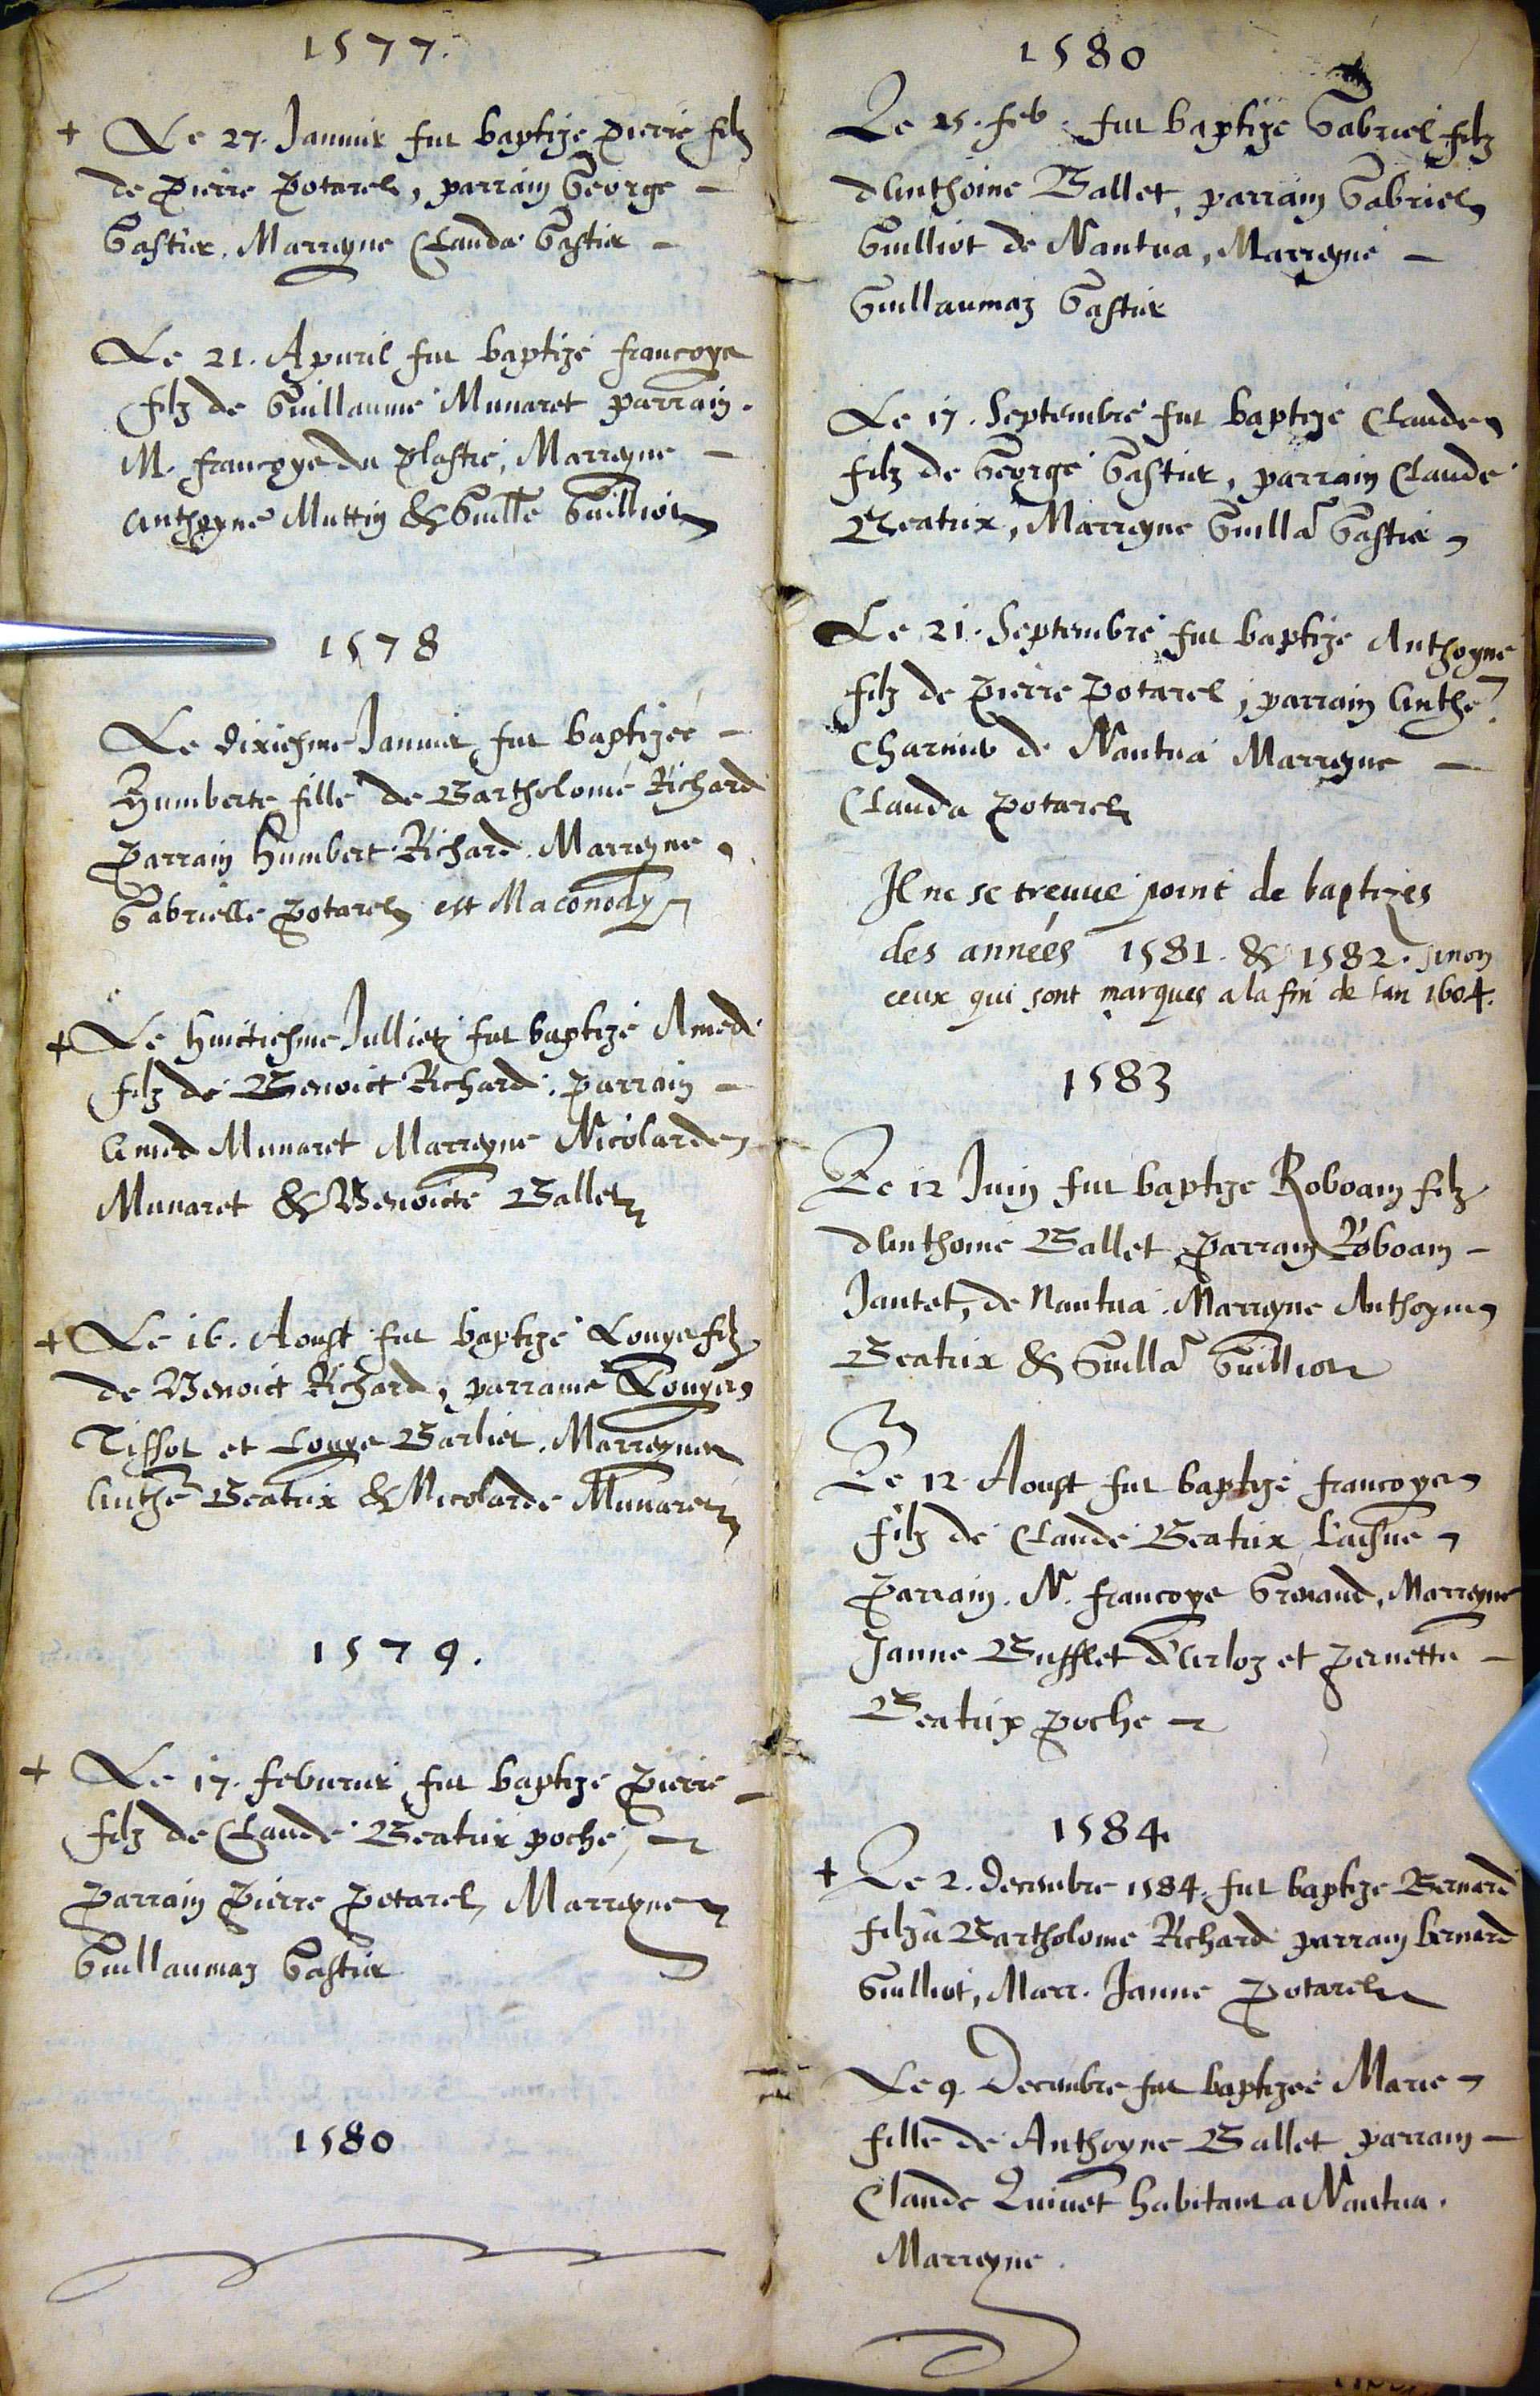 1577.
+ Le 27. Januier fut baptizé pierre filz
de pierre potarel, parrain George –
Gastier. Marreyne Clauda Gastier –
Le 21. Apuril fut baptizé francoys
filz de Guillaume Munaret parrain.
M. francoys du plastre, Marreyne –
Anthoyne Muttin & Guille Guilliot
1578
Le dixiesme Januier fut baptizée –
Humberte fille de Bartholomé Richard
parrain Humbert Richard. Marreyne
Gabrielle potarel est Maconod
+ Le huictiesme Julliet fut baptizé Amed
filz de Benoict Richard. parrain –
Amed Munaret Marreyne Nicolarde
Munaret & Benoicte Ballet
+ Le 16. Aoust fut baptizé Louys filz
de Benoict Richard, parrains Louys
Tissot et Louys Barlier. Marreynes
Anthe Beatrix & Nicolarde Munaret
1579.
+ Le 17. feburier fut baptizé pierre –
filz de Claude Beatrix poche, –
parrain pierre potarel, Marreyne
Guillaumaz Gastier
1580
1580
Le 25. feb. fut baptizé Gabriel filz
d'Anthoine Ballet, parrain Gabriel
Guilliot de Nantua, Marreyne –
Guillaumaz Gastier
Le 17. Septembre fut baptizé Claude
filz de George Gastier, parrain Claude
Beatrix, Marreyne Guilla Gastier
Le 21. Septembre fut baptizé Anthoyne
filz de pierre potarel, parrain Anthe
de Nantua Marreyne –
Clauda potarel
Il ne se treuue point de baptizés
des années 1581. & 1582. sinon
ceux qui sont marques a la fin de lan 1604.
1583
Le 12 Juin fut baptizé Roboam filz
d'Anthoine Ballet parrain Roboam –
Jantet, de Nantua. Marreyne Anthoyne
Beatrix & Guilla Guilliot
Le 12 Aoust fut baptizé francoys
filz de Claude Beatrix laisne
parrain. N. francoys Grenaud, Marreyne
Janne Bufflet d'Arloz et pernette –
Beatrix poche
1584.
+ Le 2. Decembre 1584. fut baptizé Bernard
filz a Bartholome Richard parrain bernard
Guilliot, Marr. Janne potarel
Le 9 Decembre fut baptizée Marie
fille de Anthoyne Ballet parrain –
Claude Quinet habitant a Nantua.
Marreyne.